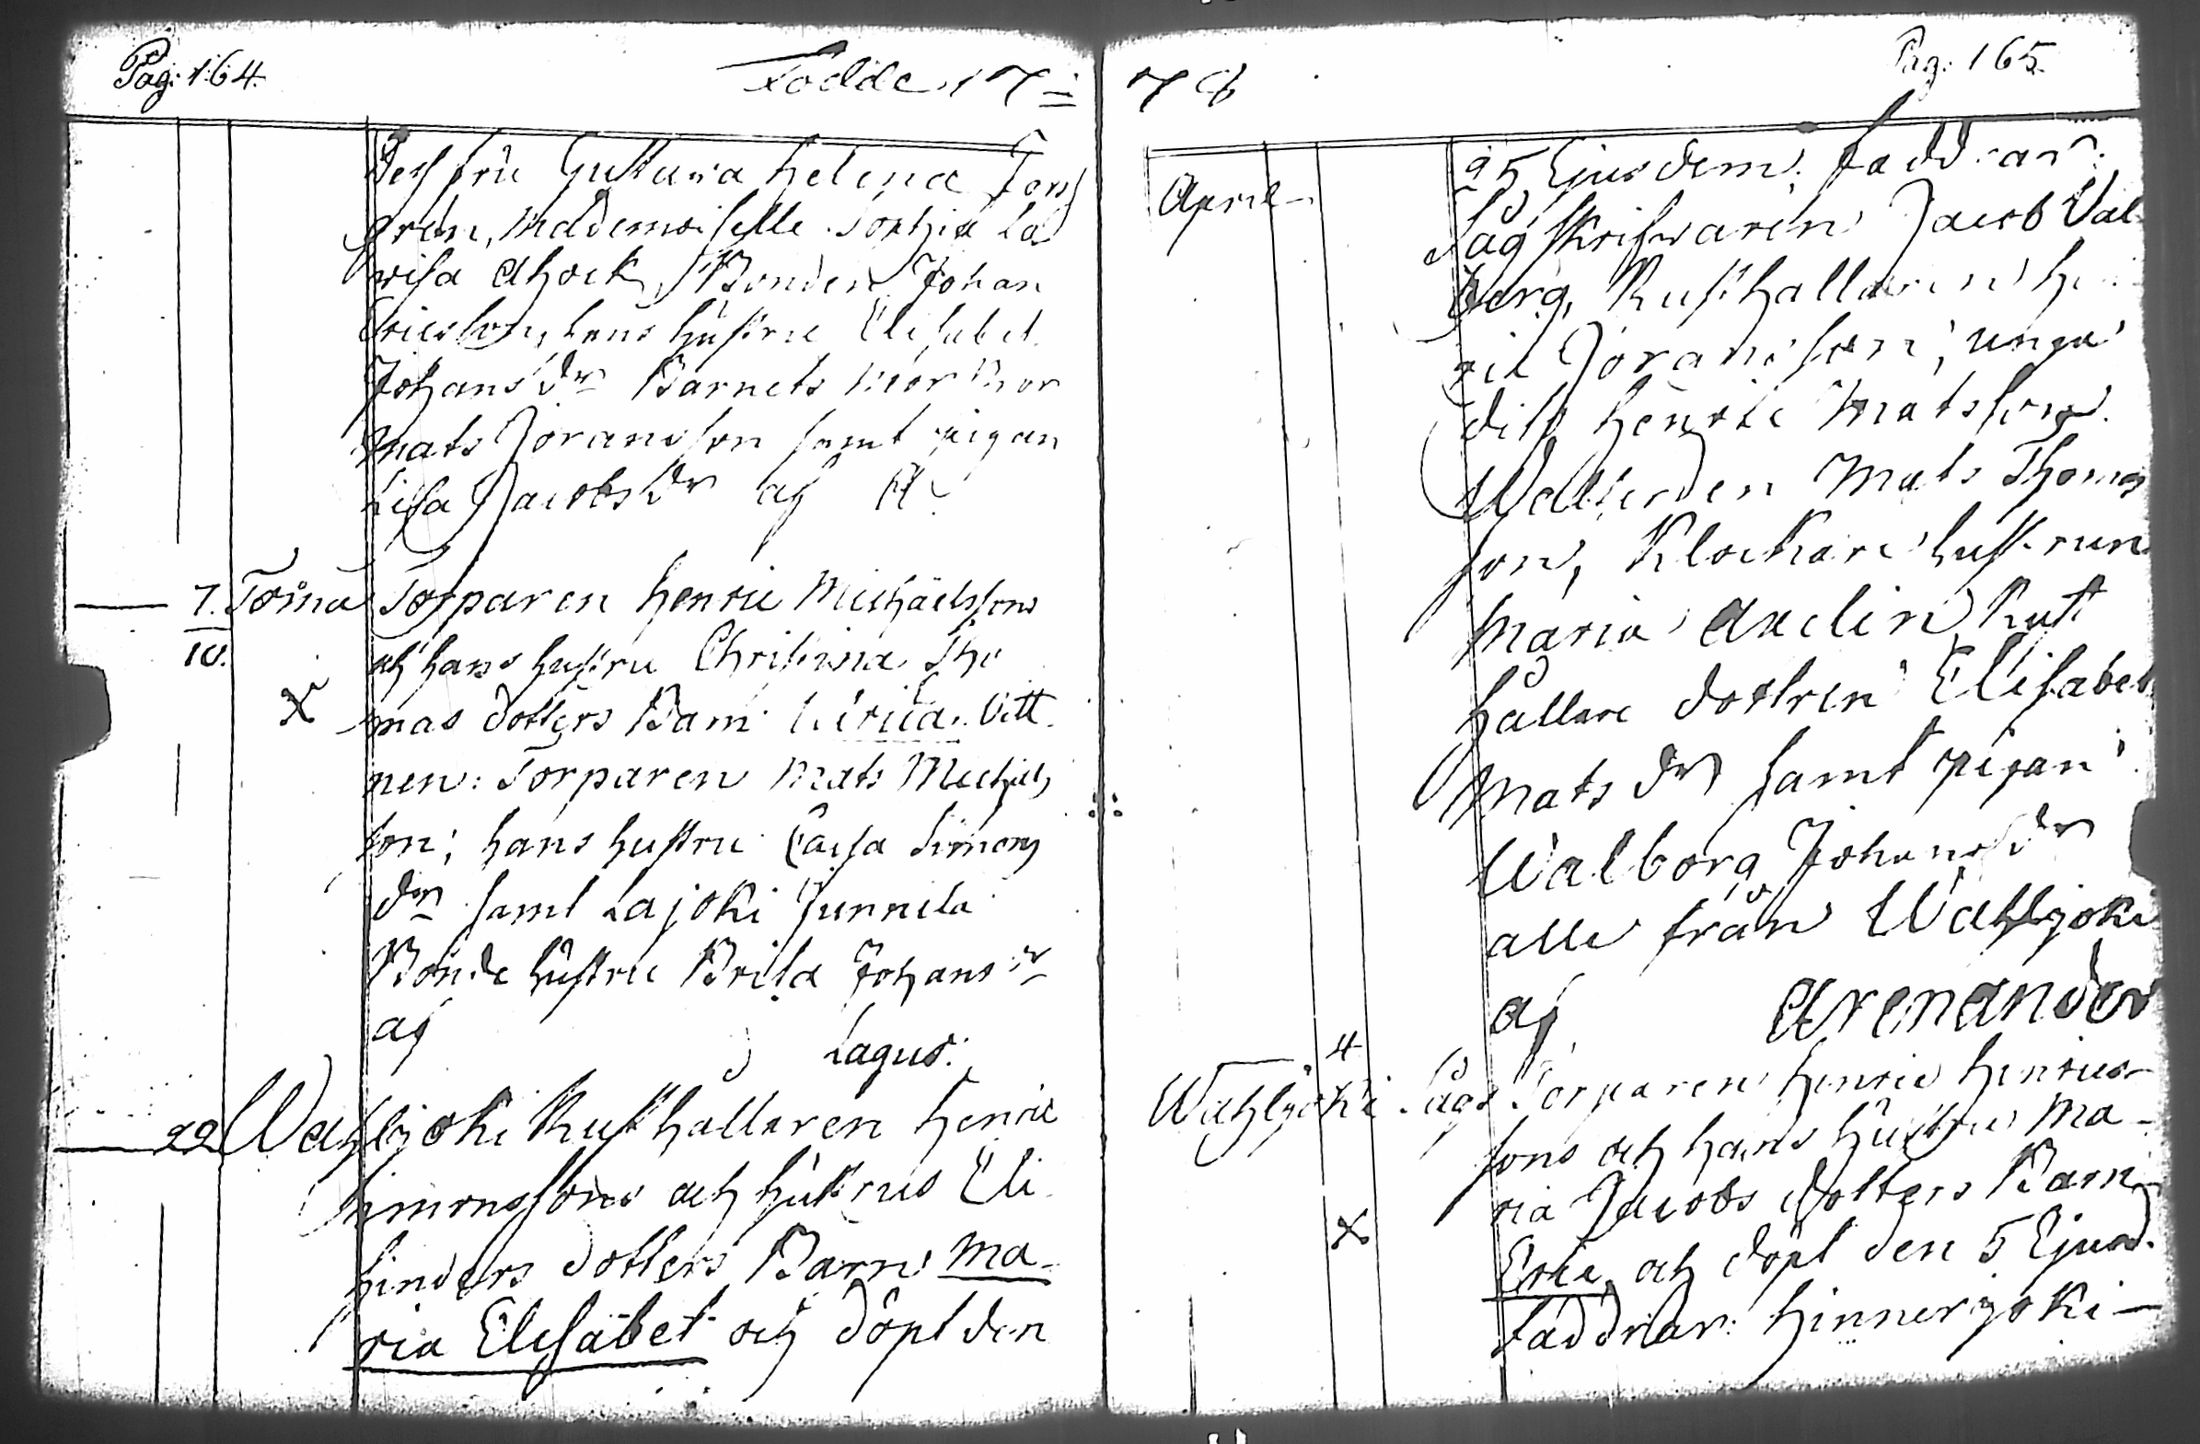 Pag: 164.
Födde 17
Dess fru Gustava Helena Fors
gren, Mademoiselle Sophia Lo
visa Ahock, Bonden Johan
Ericsson, hans hustru Elisabet
Johans dr Barnets Mor Mor
Mats Joransson samt pigan
Lisa Jacobs dr af A.
7. Torma Torparen Henric Michaelssons
10. och hans hustru Christina Tho
X mas dotters Barn Ulrica. Vitt
nen: Torparen Mats Michels
son; hans hustru Caisa Simons
dr samt Lajoki Junnila
Bonde hustru Brita Johans dr
af Lagus.
22 Wahljoki Rusthallaren Henric
Simonssons och hustrus Eli
Hinders dotters Barn Ma-
ria Elisabet och döpt den
78
Pag: 165.
April
25 Ejusdem. Faddrar:
Sågskrifwaren Jacob Val
berg, Rusthallaren Hen
ric Joransson, unga
dito Henric Matsson.
Mats Thomas
son, Klockare hustrun
Maria Axelin Rust
hållare dottren Elisabet
Mats dr samt pigan
Walborg Johans dr
alle från Wahljoki
af Arenander
4
Wahljoki Sågs Torparen Henric Henrics-
sons och hans hustrus Ma-
ria Jacobs dotters Barn
X Eric och döpt den 5 Ejusd.
faddrar: Hinnerjoki-